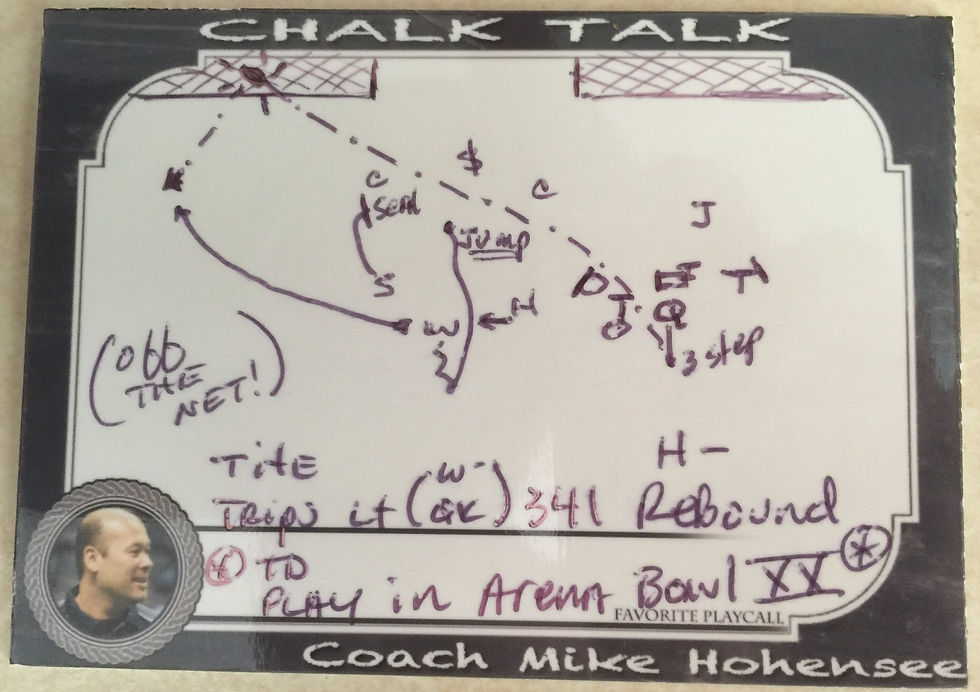 CHALK TALK
$
C
C
Seal
J
Jump
S
H
W
T
Q
3 step
(Off
THE
NET!)
TITE
H -
W-
TRIPS Lt ( ) 341 Rebound
* TD
PLAY in Arena Bowl XX *
FAVORITE PLAYCALL
Coach Mike Hohensee